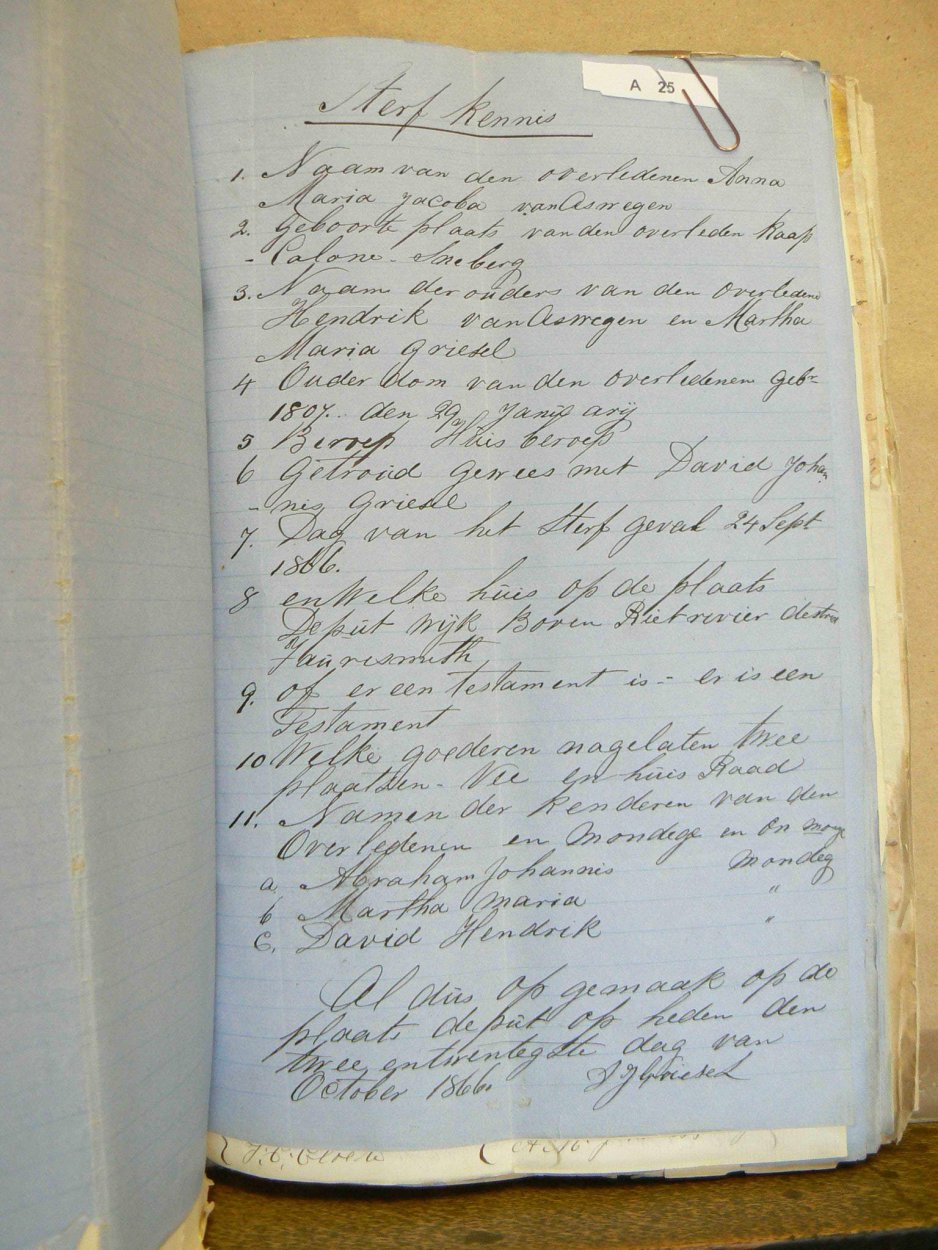 A 25
Sterf kennis
1. Naam van den overledenen Anna
Maria Jacoba van Aswegen
2. Geboorte plaats van den overleden Kaap
- Colone - Sneberg
3. Naam der ouders van den overledene
Hendrik van Aswegen en Martha
Maria Griesel
4 Ouderdom van den overledenen geb-
1807. den 29 Janu arij
5 Beroep Huis beroep
6 Getroud gewees met David Johan
- nis Griesel
7. Dag van het Sterf geval 24 Sept
1866.
8 en Welke huis op de plaats
Depút wijk Boven Rietrivier
Faurismith
9. of er een testament is - er is een
Testament
10 Welke goederen nagelaten twee
plaatsen - Vee en huis Raad
11. Namen der kenderen van den
Overledenen en mondege en on
a Abraham Johannis mondeg
b Martha Maria "
c. David Hendrik "
Al dus op gemaak op de
plaats depút op heden den
twee entwentegste dag van
October 1866. D J Griesel